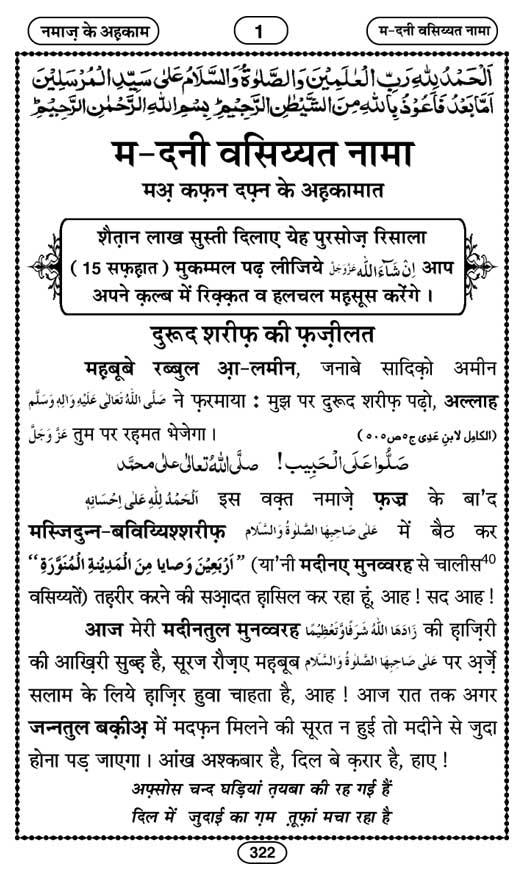 नमाज़ के अहकाम
1
म-दनी वसिय्यत नामा
اَلْحَمْدُ لِلّٰهِ رَبِّ الْعٰلَمِيْنَ وَالصَّلٰوةُ وَالسَّلَامُ عَلٰى سَيِّدِ الْمُرْسَلِيْنَ
اَمَّا بَعْدُ فَاَعُوْذُ بِاللّٰهِ مِنَ الشَّيْطٰنِ الرَّجِيْمِ ؕ بِسْمِ اللّٰهِ الرَّحْمٰنِ الرَّحِيْمِ ؕ
म-दनी वसिय्यत नामा
मअ़ कफ़न दफ़्न के अहकामात
शैत़ान लाख सुस्ती दिलाए येह पुरसोज़ रिसाला
( 15 सफ़ह़ात ) मुकम्मल पढ़ लीजिये اِنْ شَآءَ اللّٰه عَزَّوَجَلَّ आप
अपने क़ल्ब में रिक़्क़त व हलचल महसूस करेंगे ।
दुरूद शरीफ़ की फ़ज़ीलत
महबूबे रब्बुल आ़-लमीन, जनाबे सादिक़ो अमीन
صَلَّى اللّٰهُ تَعَالٰى عَلَيْهِ وَاٰلِهٖ وَسَلَّم ने फ़रमाया : मुझ पर दुरूद शरीफ़ पढ़ो, अल्लाह
عَزَّوَجَلَّ तुम पर रहमत भेजेगा । (الكامل لابن عدی ج٥ ص٥٠٥)
صَلُّوا عَلَى الْحَبِيْب! صَلَّى اللّٰهُ تَعَالٰى عَلٰى مُحَمَّد
اَلْحَمْدُ لِلّٰهِ عَلٰى اِحْسَانِهٖ इस वक़्त नमाज़े फ़ज्र के बा'द
मस्जिदुन्न-बविय्यिश्शरीफ़ عَلٰى صَاحِبِهَا الصَّلٰوةُ وَالسَّلَام में बैठ कर
“اَرْبَعِيْن وَصَايَا مِنَ الْمَدِيْنَةِ الْمُنَوَّرَةِ” (या'नी मदीनए मुनव्वरह से चालीस40
वसिय्यतें) तहरीर करने की सआ़दत ह़ासिल कर रहा हूं, आह ! सद आह !
आज मेरी मदीनतुल मुनव्वरह زَادَهَا اللّٰهُ شَرَفًا وَّتَعْظِيْمًا की हाज़िरी
की आख़िरी सुब्ह है, सूरज रौज़ए महबूब عَلٰى صَاحِبِهَا الصَّلٰوةُ وَالسَّلَام पर अ़र्ज़े
सलाम के लिये हाज़िर हुवा चाहता है, आह ! आज रात तक अगर
जन्नतुल बक़ीअ़ में मदफ़न मिलने की सूरत न हुई तो मदीने से जुदा
होना पड़ जाएगा । आंख अश्कबार है, दिल बे क़रार है, हाए !
अफ़्सोस चन्द घड़ियां त़यबा की रह गई हैं
दिल में जुदाई का ग़म तूफ़ां मचा रहा है
322